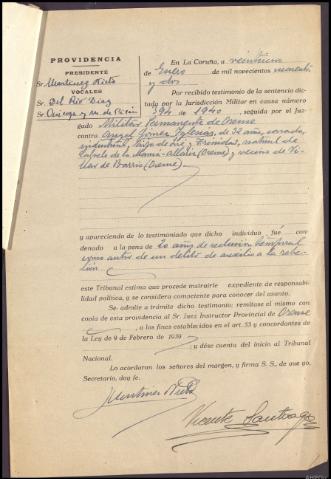 PROVIDENCIA
PRESIDENTE
Sr. Martinez Nieto
VOCALES
Sr. Del Rio Diaz
Sr.
En La Coruña, a veintiuno
de Enero de mil novecientos cuarenta
y dos
Por recibido testimonio de la sentencia dic-
tada por la Jurisdicción Militar en causa número
394 de 1940, seguida por el Juz-
gado Militar Permanente de Orense
contra Angel Gómez Iglesias, de 32 años, casado,
industrial, hijo de José y Trinidad, natural de
Allariz (Orense) y vecino de Vi-
lar de Barrio (Orense)
y apareciendo de lo testimoniado que dicho individuo fué con-
denado a la pena de 20 años de reclusión temporal
como autor de un delito de auxilio a la rebe-
lión
este Tribunal estima que procede instruirle expediente de responsabi-
lidad política, y se considera competente para conocer del asunto.
Se admite a trámite dicho testimonio; remítase el mismo con
copia de esta providencia al Sr. Juez Instructor Provincial de Orense
, a los fines establecidos en el art. 53 y concordantes de
la Ley de 9 de Febrero de 1939
, y dése cuenta del inicio al Tribunal
Nacional.
Lo acordaron los señores del margen, y firma S. S., de que yo,
Secretario, doy fe.
Martinez Nieto
Vicente Santiago